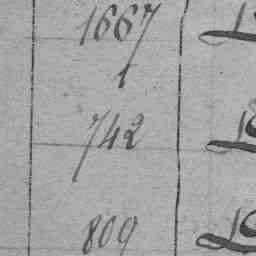 1667
1
742
809